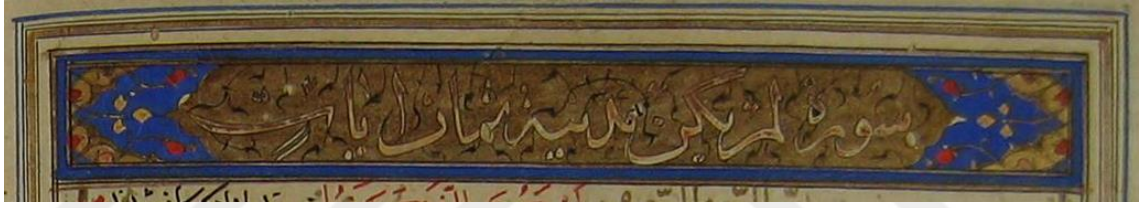 سورة لم يكن مدنية ثمان ايات